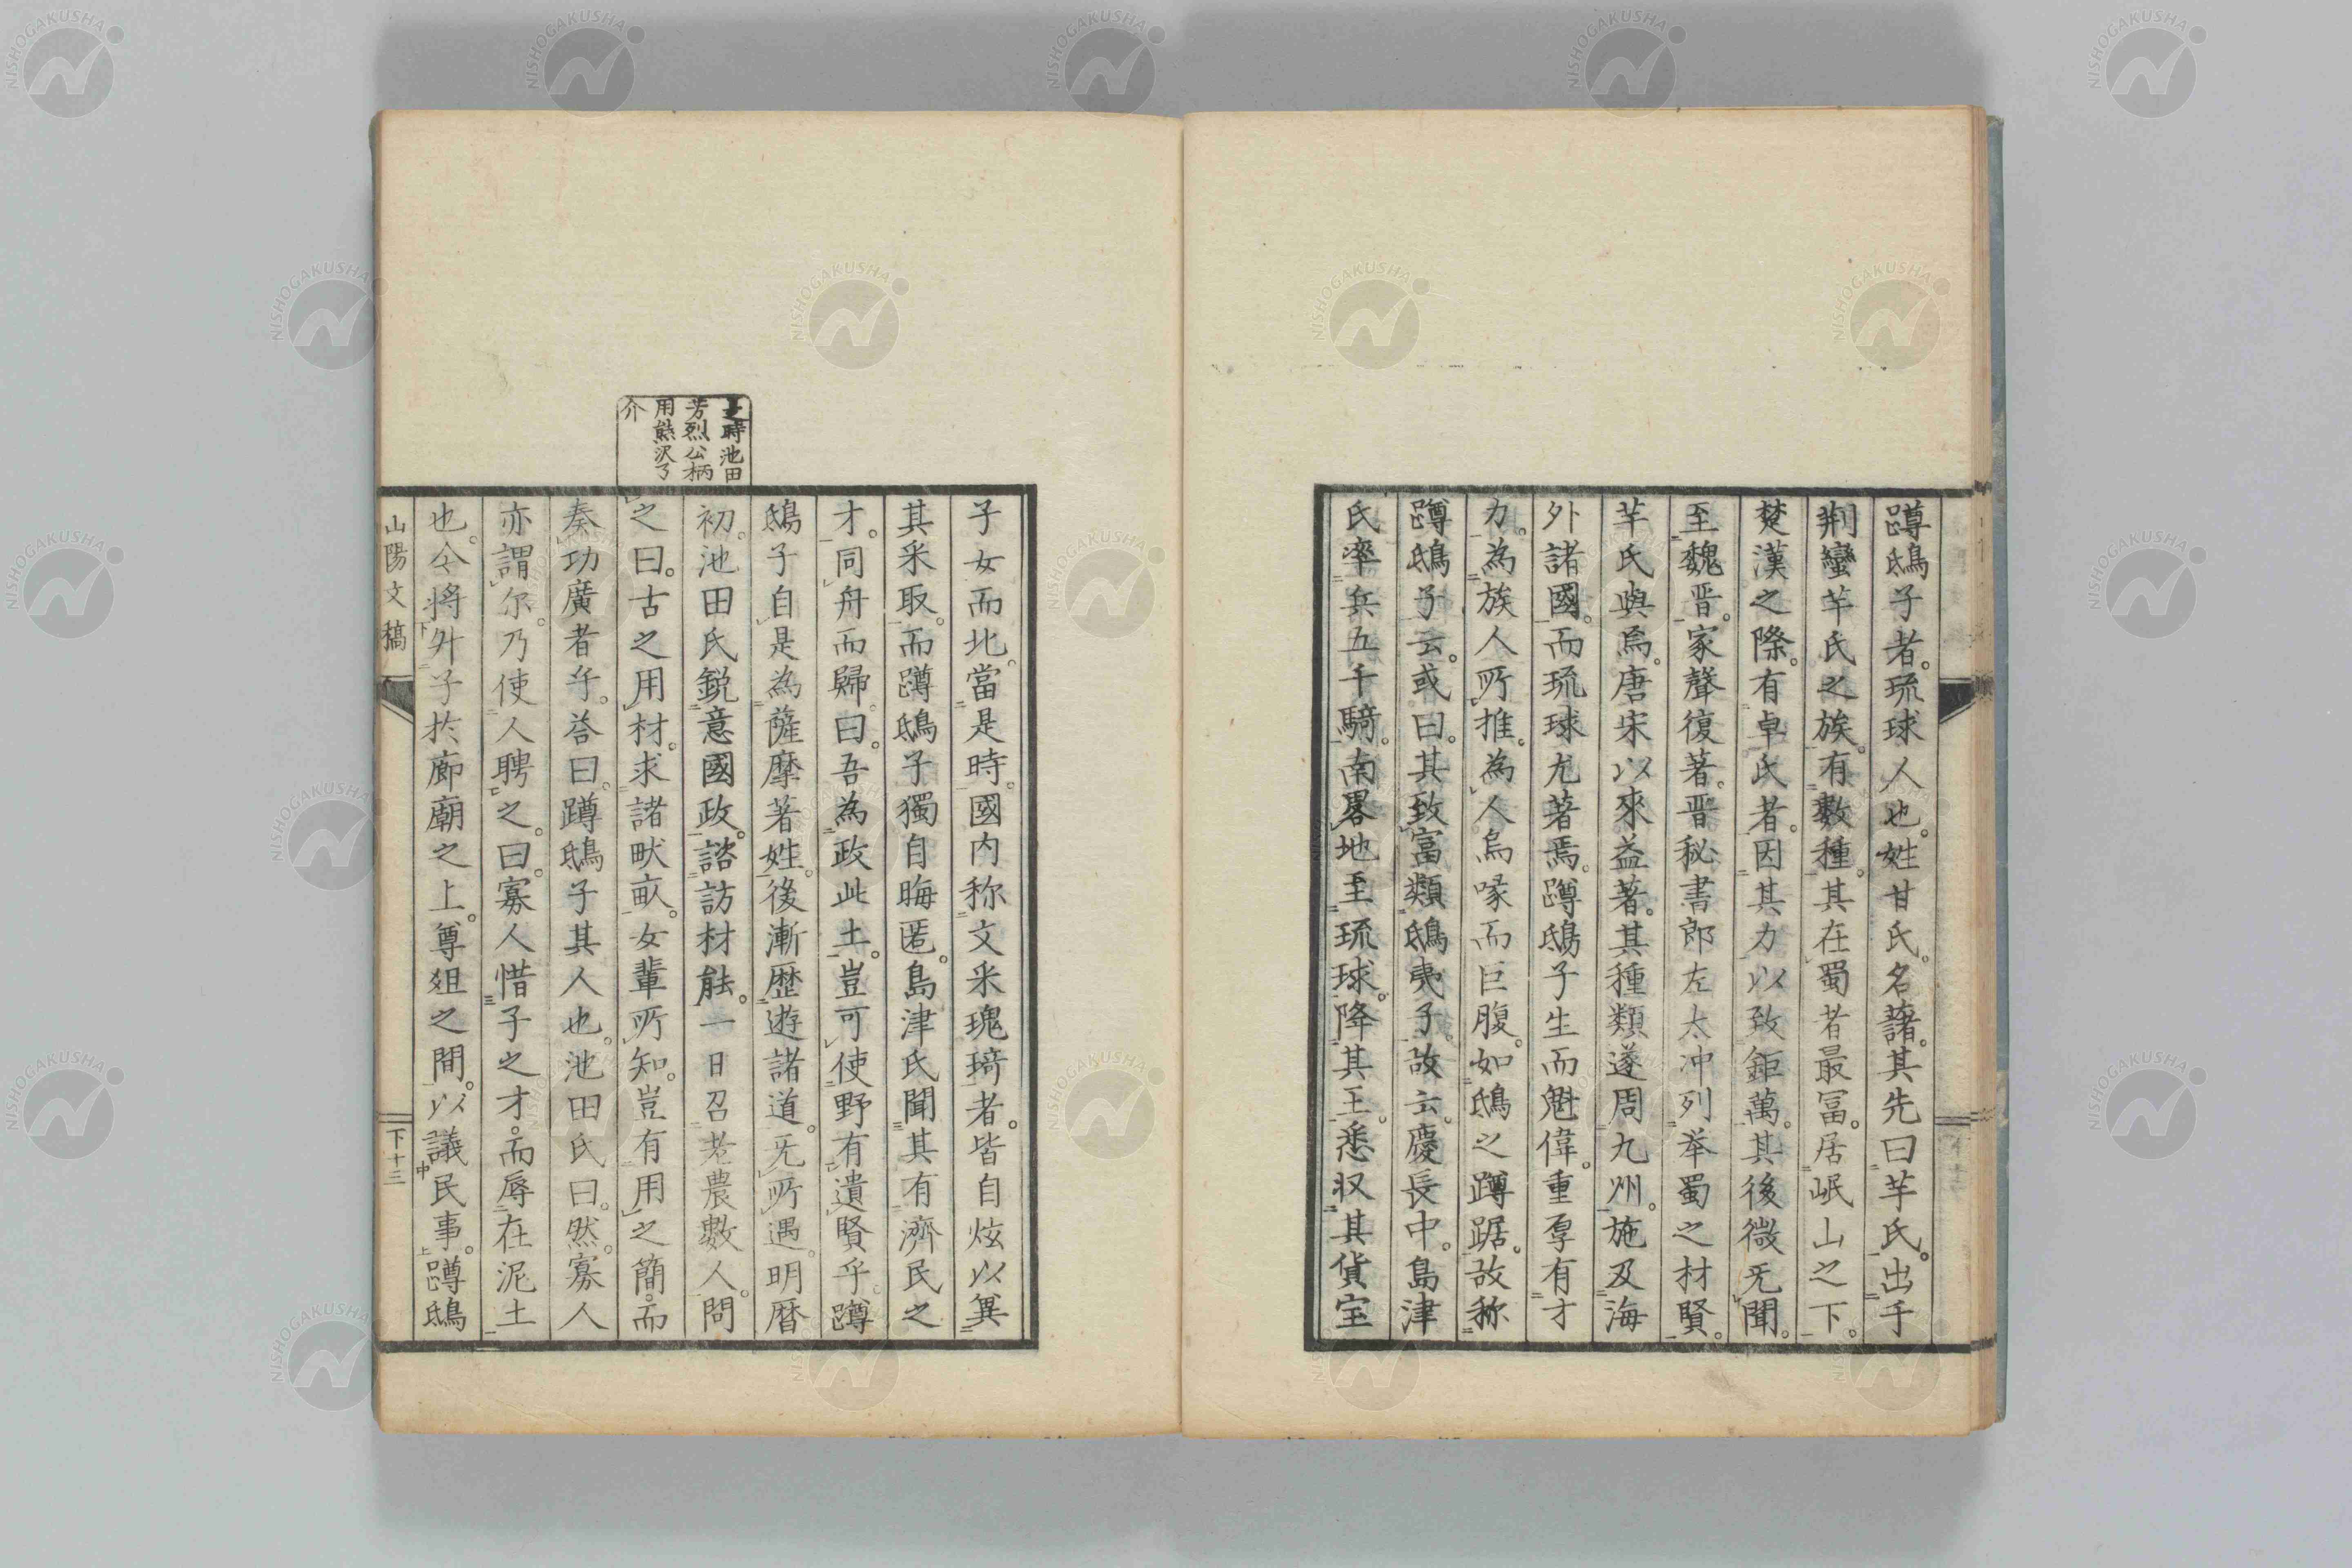 蹲鴟子者。琉球人也。姓甘氏。名藷。其先曰芋氏。出于
荆蠻芊氏之族。有數種。其在蜀者最冨。居岷山之下。
楚漢之際。有卓氏者。因其力以致鉅萬。其後微旡聞。
至魏晋。家聲復著。晋秘書郎左太冲列举蜀之材賢。
芋氏與焉。唐宋以來益著。其種類遂周九州。施及海
外諸國。而琉球尤著焉。蹲鴟子生而魁偉。重厚有才
力。為族人所推。為人烏喙而巨腹。如鴟之蹲踞。故称
蹲鴟子云。或曰。其致富類鴟夷子。故云。慶長中。島津
氏率兵五千騎。南畧地至琉球。降其王。悉収其貨宝
子女而北。當是時。國内称文采瑰琦者。皆自炫以冀
其采取。而蹲鴟子獨自晦匿。島津氏聞其有濟民之
才。同舟而歸。曰。吾為政此土。豈可使野有遺賢乎。蹲
鴟子自是為薩摩著姓。後漸歴遊諸道。旡所遇。明暦
初。池田氏鋭意國政。諮訪材能。一日召老農數人。問
之曰。古之用材。求諸畎畝。女輩所知。豈有用之簡。而
奏功廣者乎。荅曰。蹲鴟子其人也。池田氏曰。然。寡人
亦謂尓。乃使人聘之。曰。寡人惜子之才。而辱在泥土
也。今將升子於廊廟之上。尊俎之間。以議民事。蹲鴟
之時池田
芳烈公柄
用熊沢了
介
山陽文稿
下十三
NISHOGAKUSHA